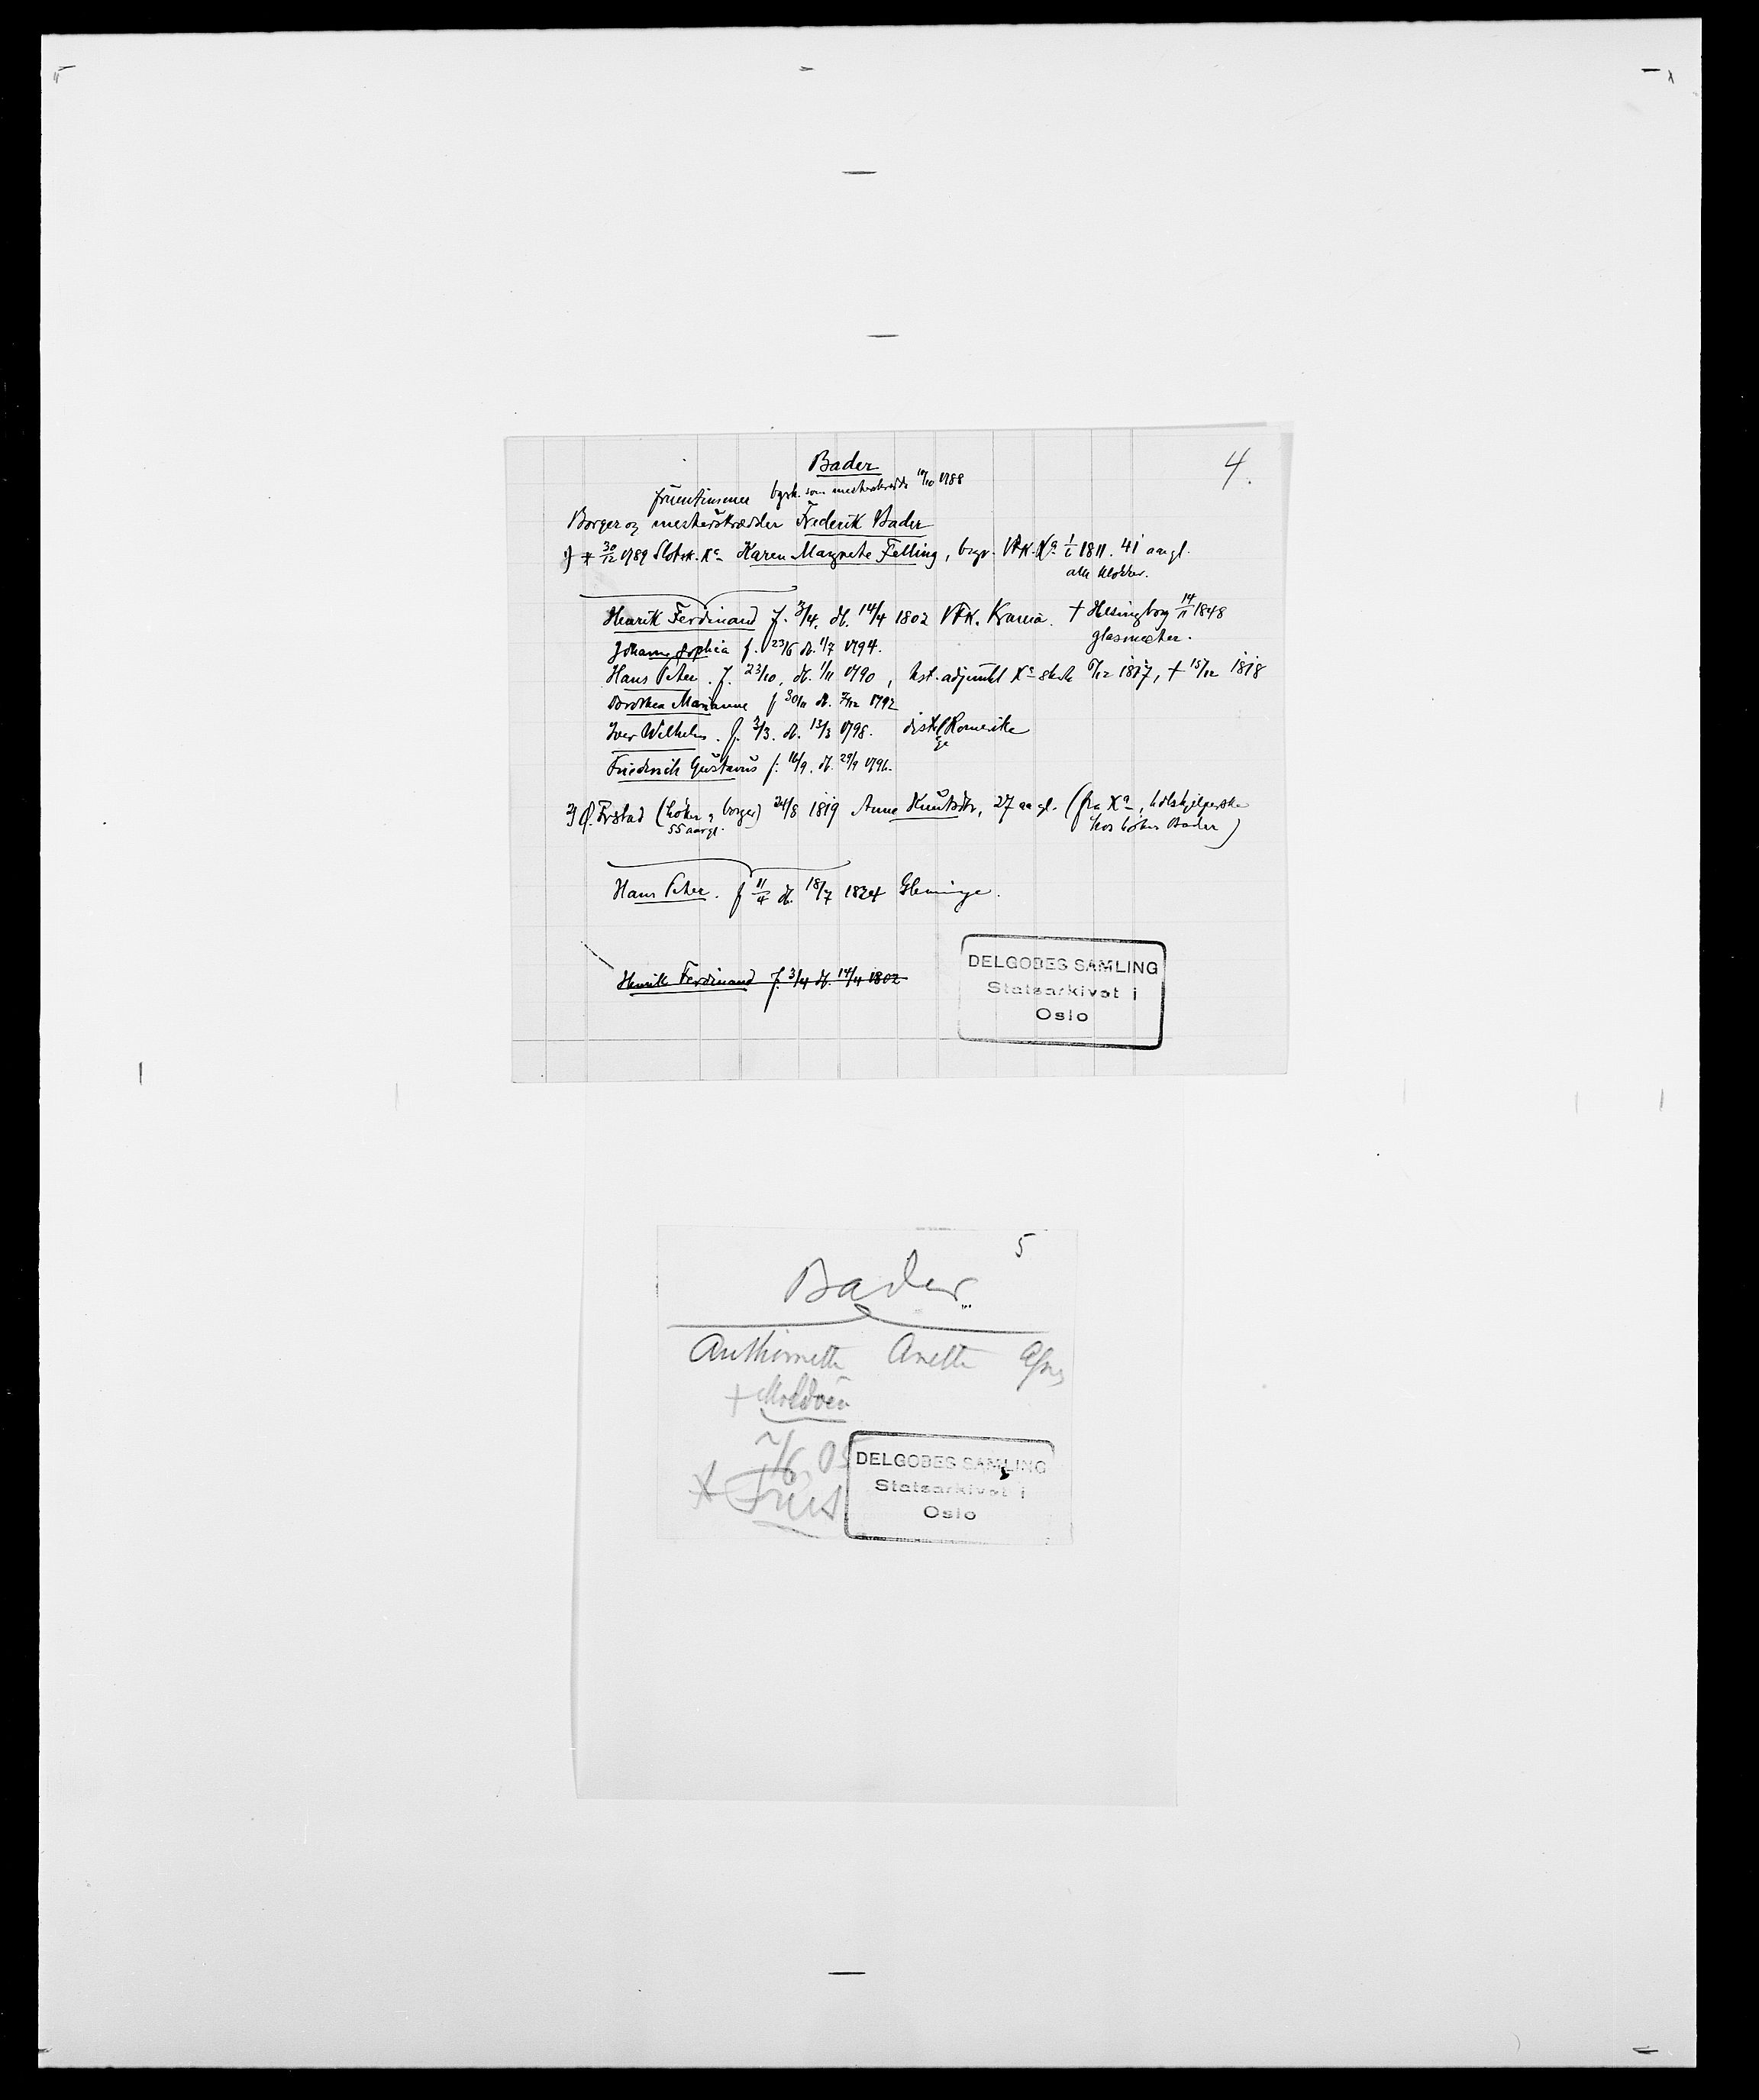 4.
Bader
bgsk. som mesterskrædder 10/10 1788
frūentimmer
Borger og mesterskrædder Frederik Bader
1) 30/12 1789 Slotsk. Xa Karen Margrete Felling, begr. VFK. Xa 1/6 1811. 41 aar gl.
alle klokker.
Henrik Ferdinand f. 3/4. db. 14/4 1802 VFK. Krania. † Helsingborg 14/11 1848
glasmester.
Johanne Sophia f. 23/6 db. 1/7 1794.
Hans Peter. f. 23/10, db. 1/11 1790, kst. adjunkt Xa 6/12 1817, † 15/12 1818
Dorothea Marianne f 30/11 db. 7/12 1792
Iver Wilhelm. f. 3/3. db. 13/3 1798. distl Romerike
Friedrich Gūstavūs f: 16/9. db. 29/9 1796.
2) Ø. Frstad (höker og borger) 24/8 1819 Anne Knūtsdtr, 27 aar gl. (fra Xa,
55 aar gl. hos höker Bader)
Hans Peter. f 11/4 db. 18/7 1824 Glemminge.
Henrik Ferdinand f. 3/4 db. 14/4 1802
DELGOBES SAMLING
Statsarkivet i
Oslo
5
Bader
Anthionette Anette
† Moldöen
2/6 05
DELGOBES SAMLING
Statsarkivet i
Oslo